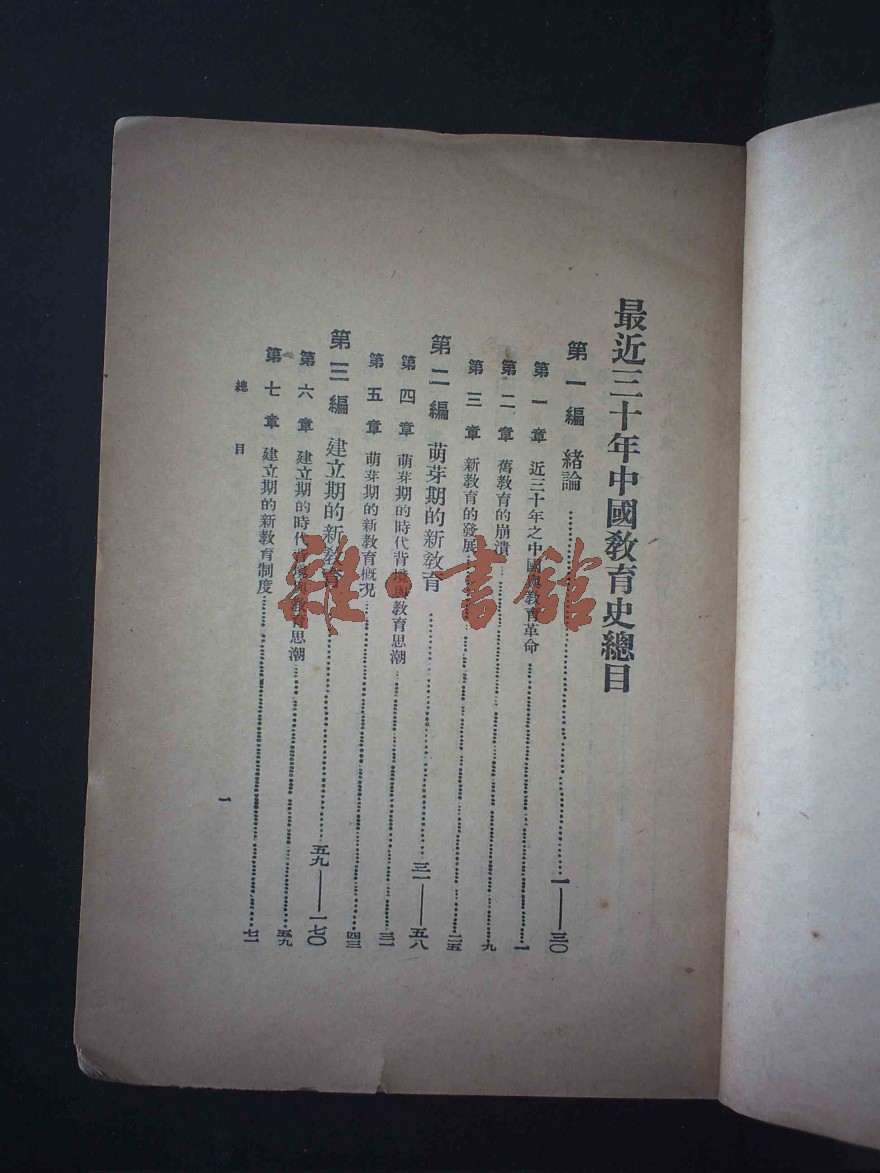 最近三十年中國敎育史總目
第一編 緒論……一——三〇
第一章 近三十年之中國與敎育革命……一
第二章 舊敎育的崩潰……九
第三章 新敎育的發展……二五
第二編 萌芽期的新敎育……三一——五八
第四章 萌芽期的時代背境與敎育思潮……三一
第五章 萌芽期的新敎育槪况……四三
第三編 建立期的新敎育……五九——一七〇
第六章 建立期的時代背境與敎育思潮……五九
第七章 建立期的新敎育制度……七一
總目
一
雜·書館